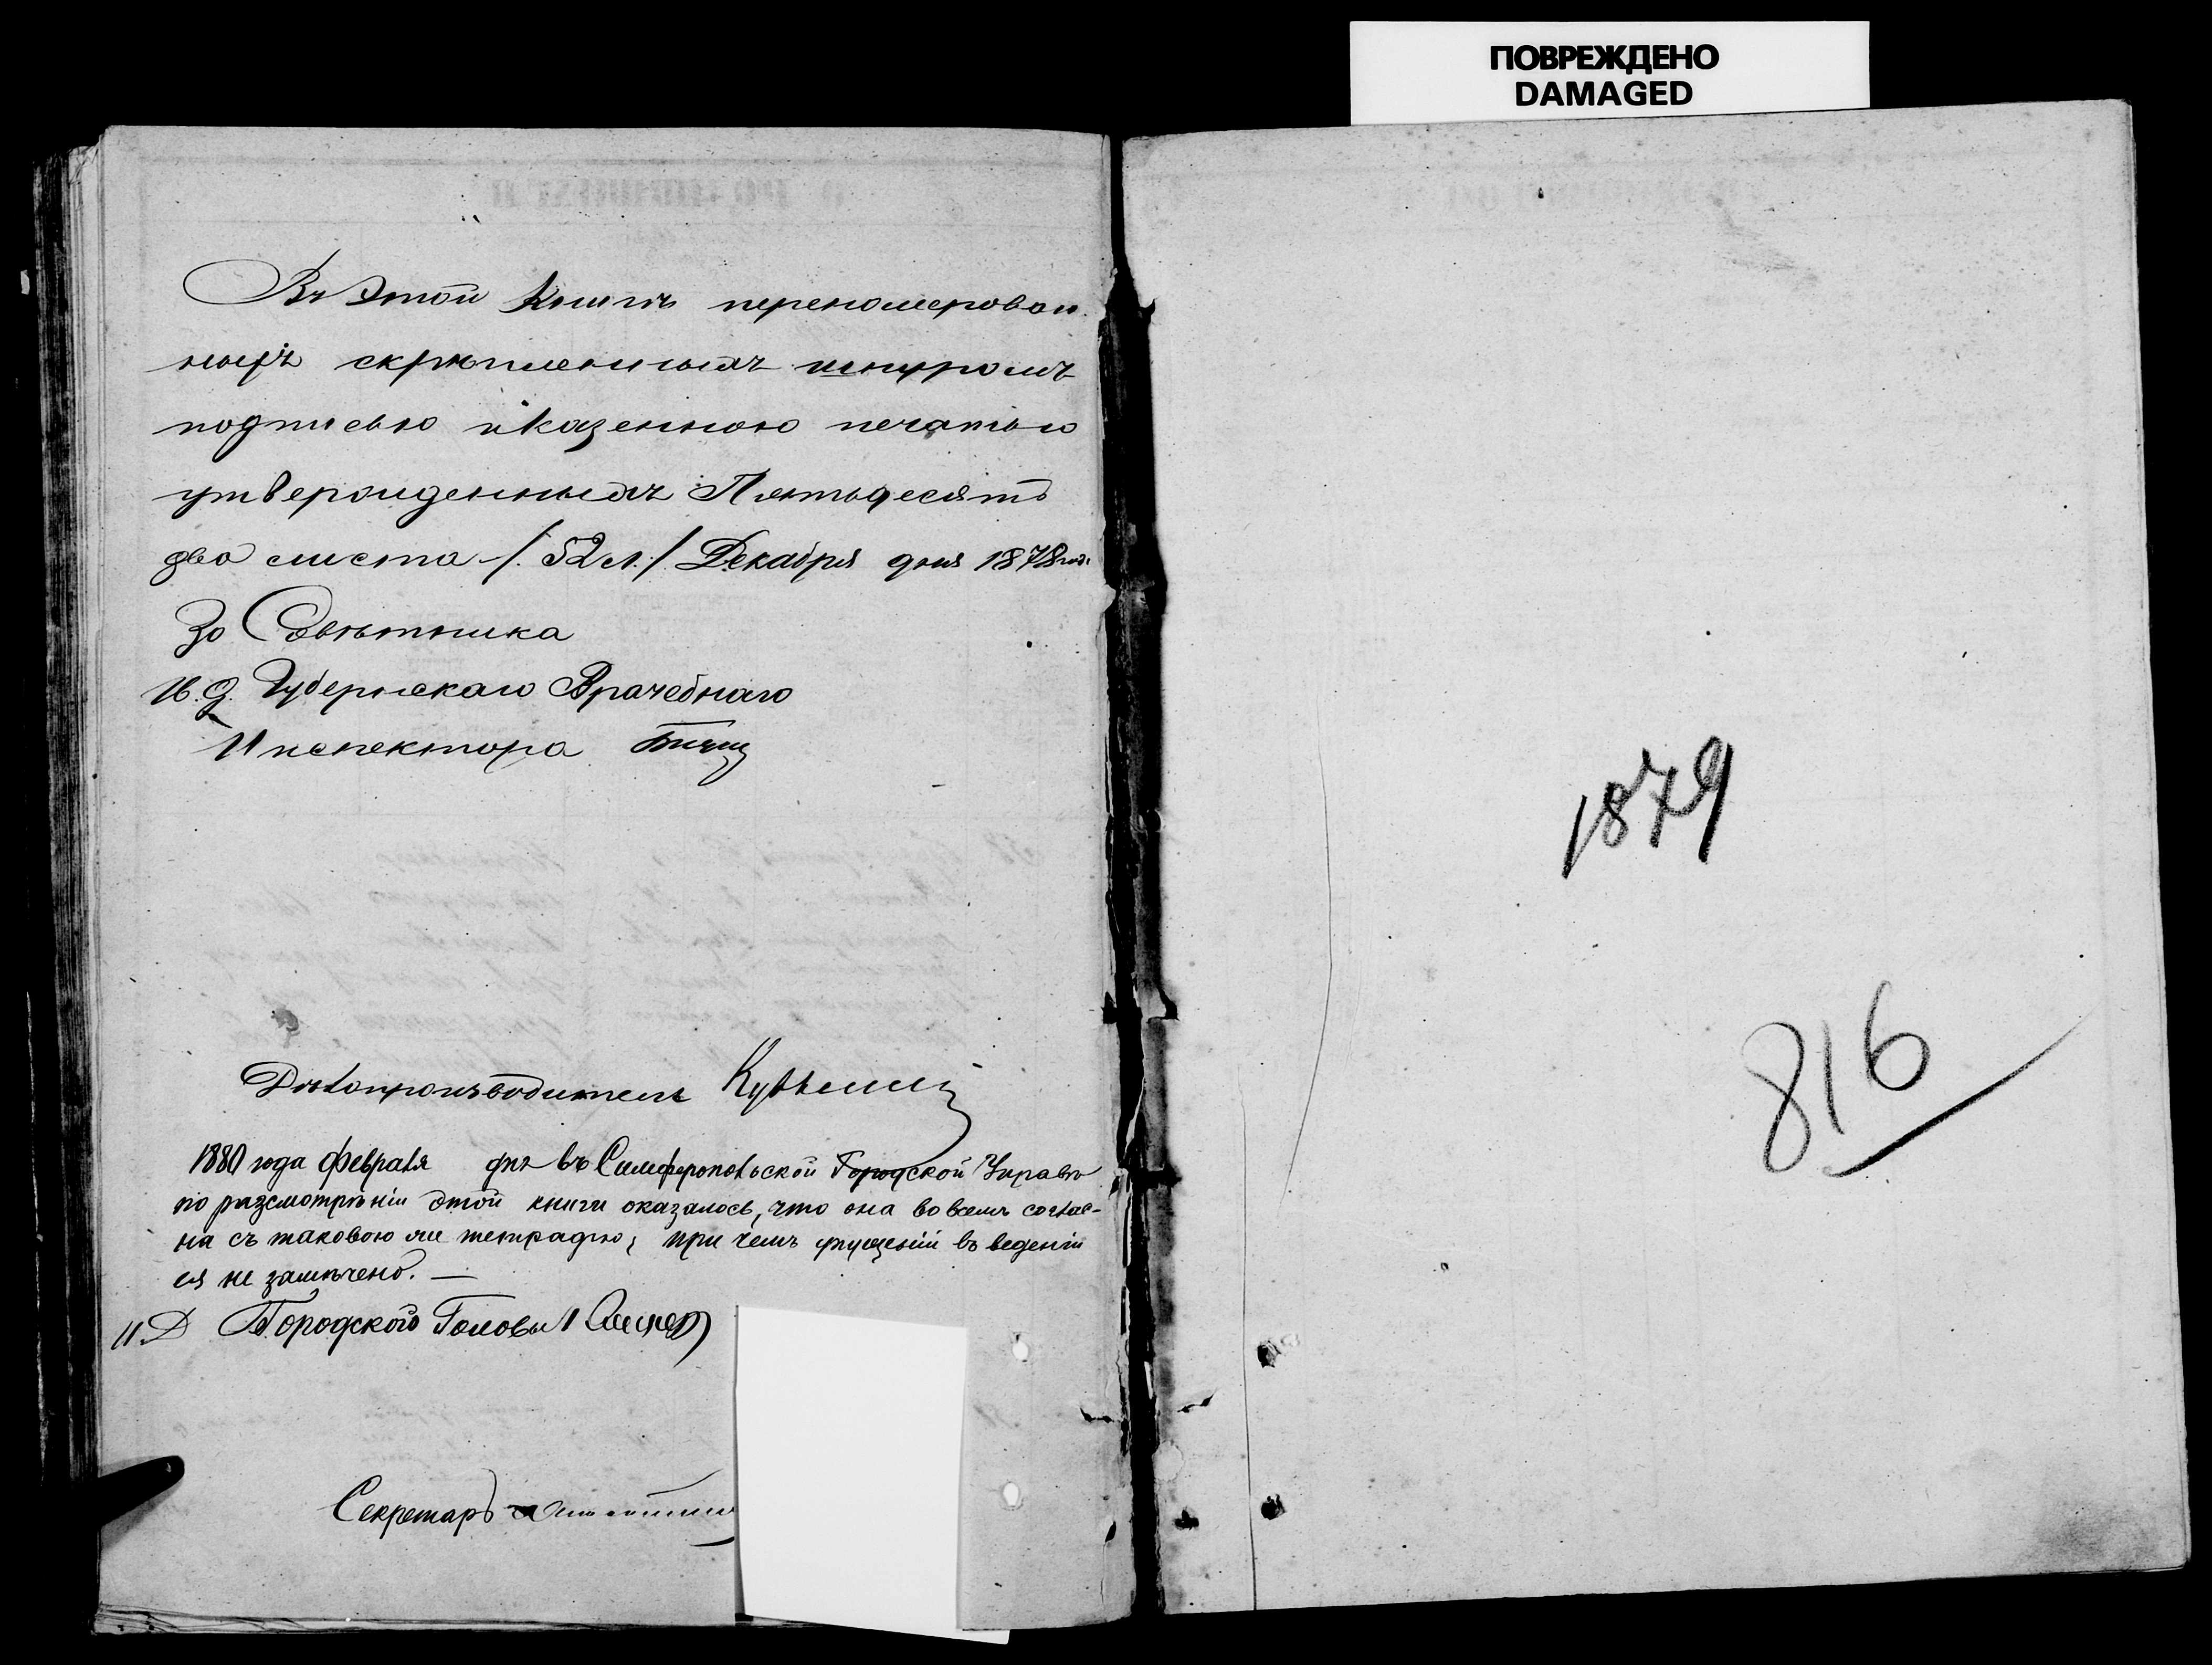 ПОВРЕЖДЕНО
DAMAGED
Въ этой Книгѣ переномерован
ныхъ скрѣпленныхъ шнуромъ
подписью и Казенною печатью
утвержденныхъ Пятьдесятъ
два листа /. 52 л./ Декабря дня 1878 год.
За Совѣтника
И. д. Губернскаго Врачебнаго
Инспектора
Дѣлопроизводитель
1880 года февраля дня въ Симферопольской Городской Управѣ
по разсмотрѣніи этой книги оказалось, что она во всемъ соглас-
на съ таковою же тетрадью, при чемъ упущеній въ веденіи
ея не замѣчено. —
И.Д Городского Головы
Секретарь
1879
816